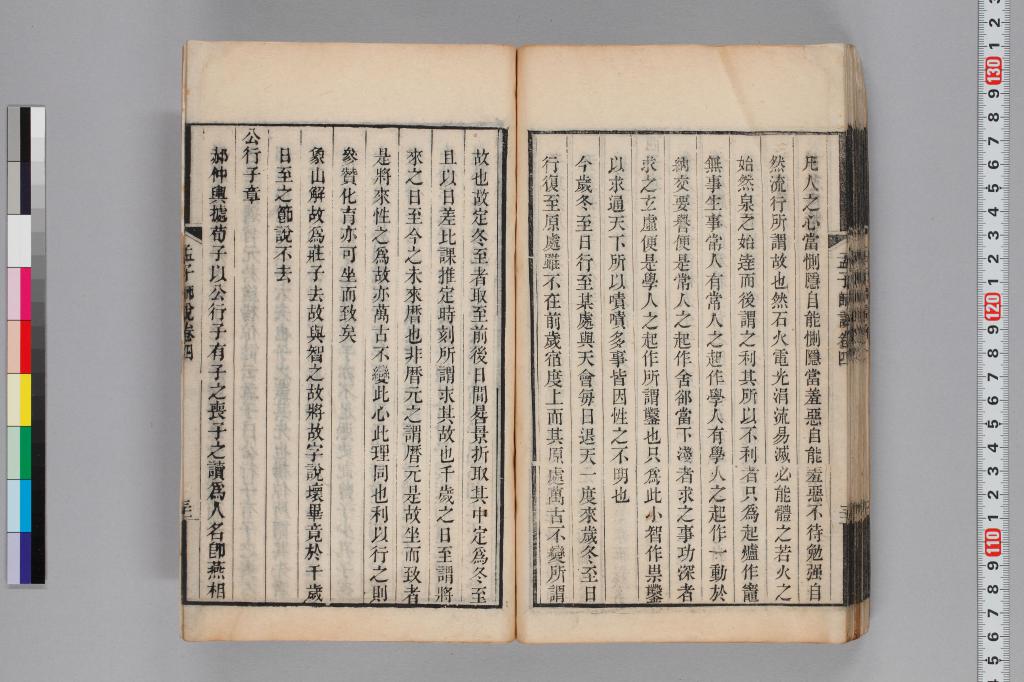 凡人之心當惻隱自能惻隱當羞惡自能羞惡不待勉强自
然流行所謂故也然石火電光涓流易滅必能體之若火之
始然泉之始達而後謂之利其所以不利者只爲起爐作竈
無事生事常人有常人之起作學人有學人之起作一動於
納交要譽便是常人之起作舍郤當下淺者求之事功深者
求之玄虛便是學人之起作所謂鑿也只爲此小智作祟鑿
以求通天下所以嘖嘖多事皆因性之不明也
今歲冬至日行至某處與天會每日退天一度來歲冬至日
行復至原處雖不在前歲宿度上而其原處萬古不變所謂
孟子師說卷四
故也故定冬至者取至前後日間晷景折取其中定爲冬至
且以日差比課推定時刻所謂求其故也千歲之日至謂將
來之日至今之未來曆也非曆元之謂曆元是故坐而致者
是將來性之爲故亦萬古不變此心此理同也利以行之則
參贊化育亦可坐而致矣
象山解故爲莊子去故與智之故將故字說壞畢竟於千歲
日至之節說不去
公行子章
郝仲輿據荀子以公行子有子之喪子之讀爲人名卽燕相
孟子師說卷四
130
120
110